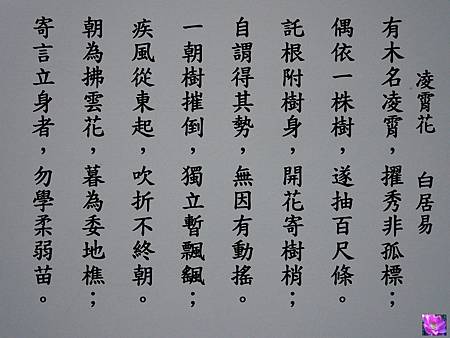 凌霄花 白居易
有木名凌霄，擢秀非孤標；
偶依一株樹，遂抽百尺條。
託根附樹身，開花寄樹梢；
自謂得其勢，無因有動搖。
一朝樹摧倒，獨立暫飄颻；
疾風從東起，吹折不終朝。
朝為拂雲花，暮為委地樵；
寄言立身者，勿學柔弱苗。